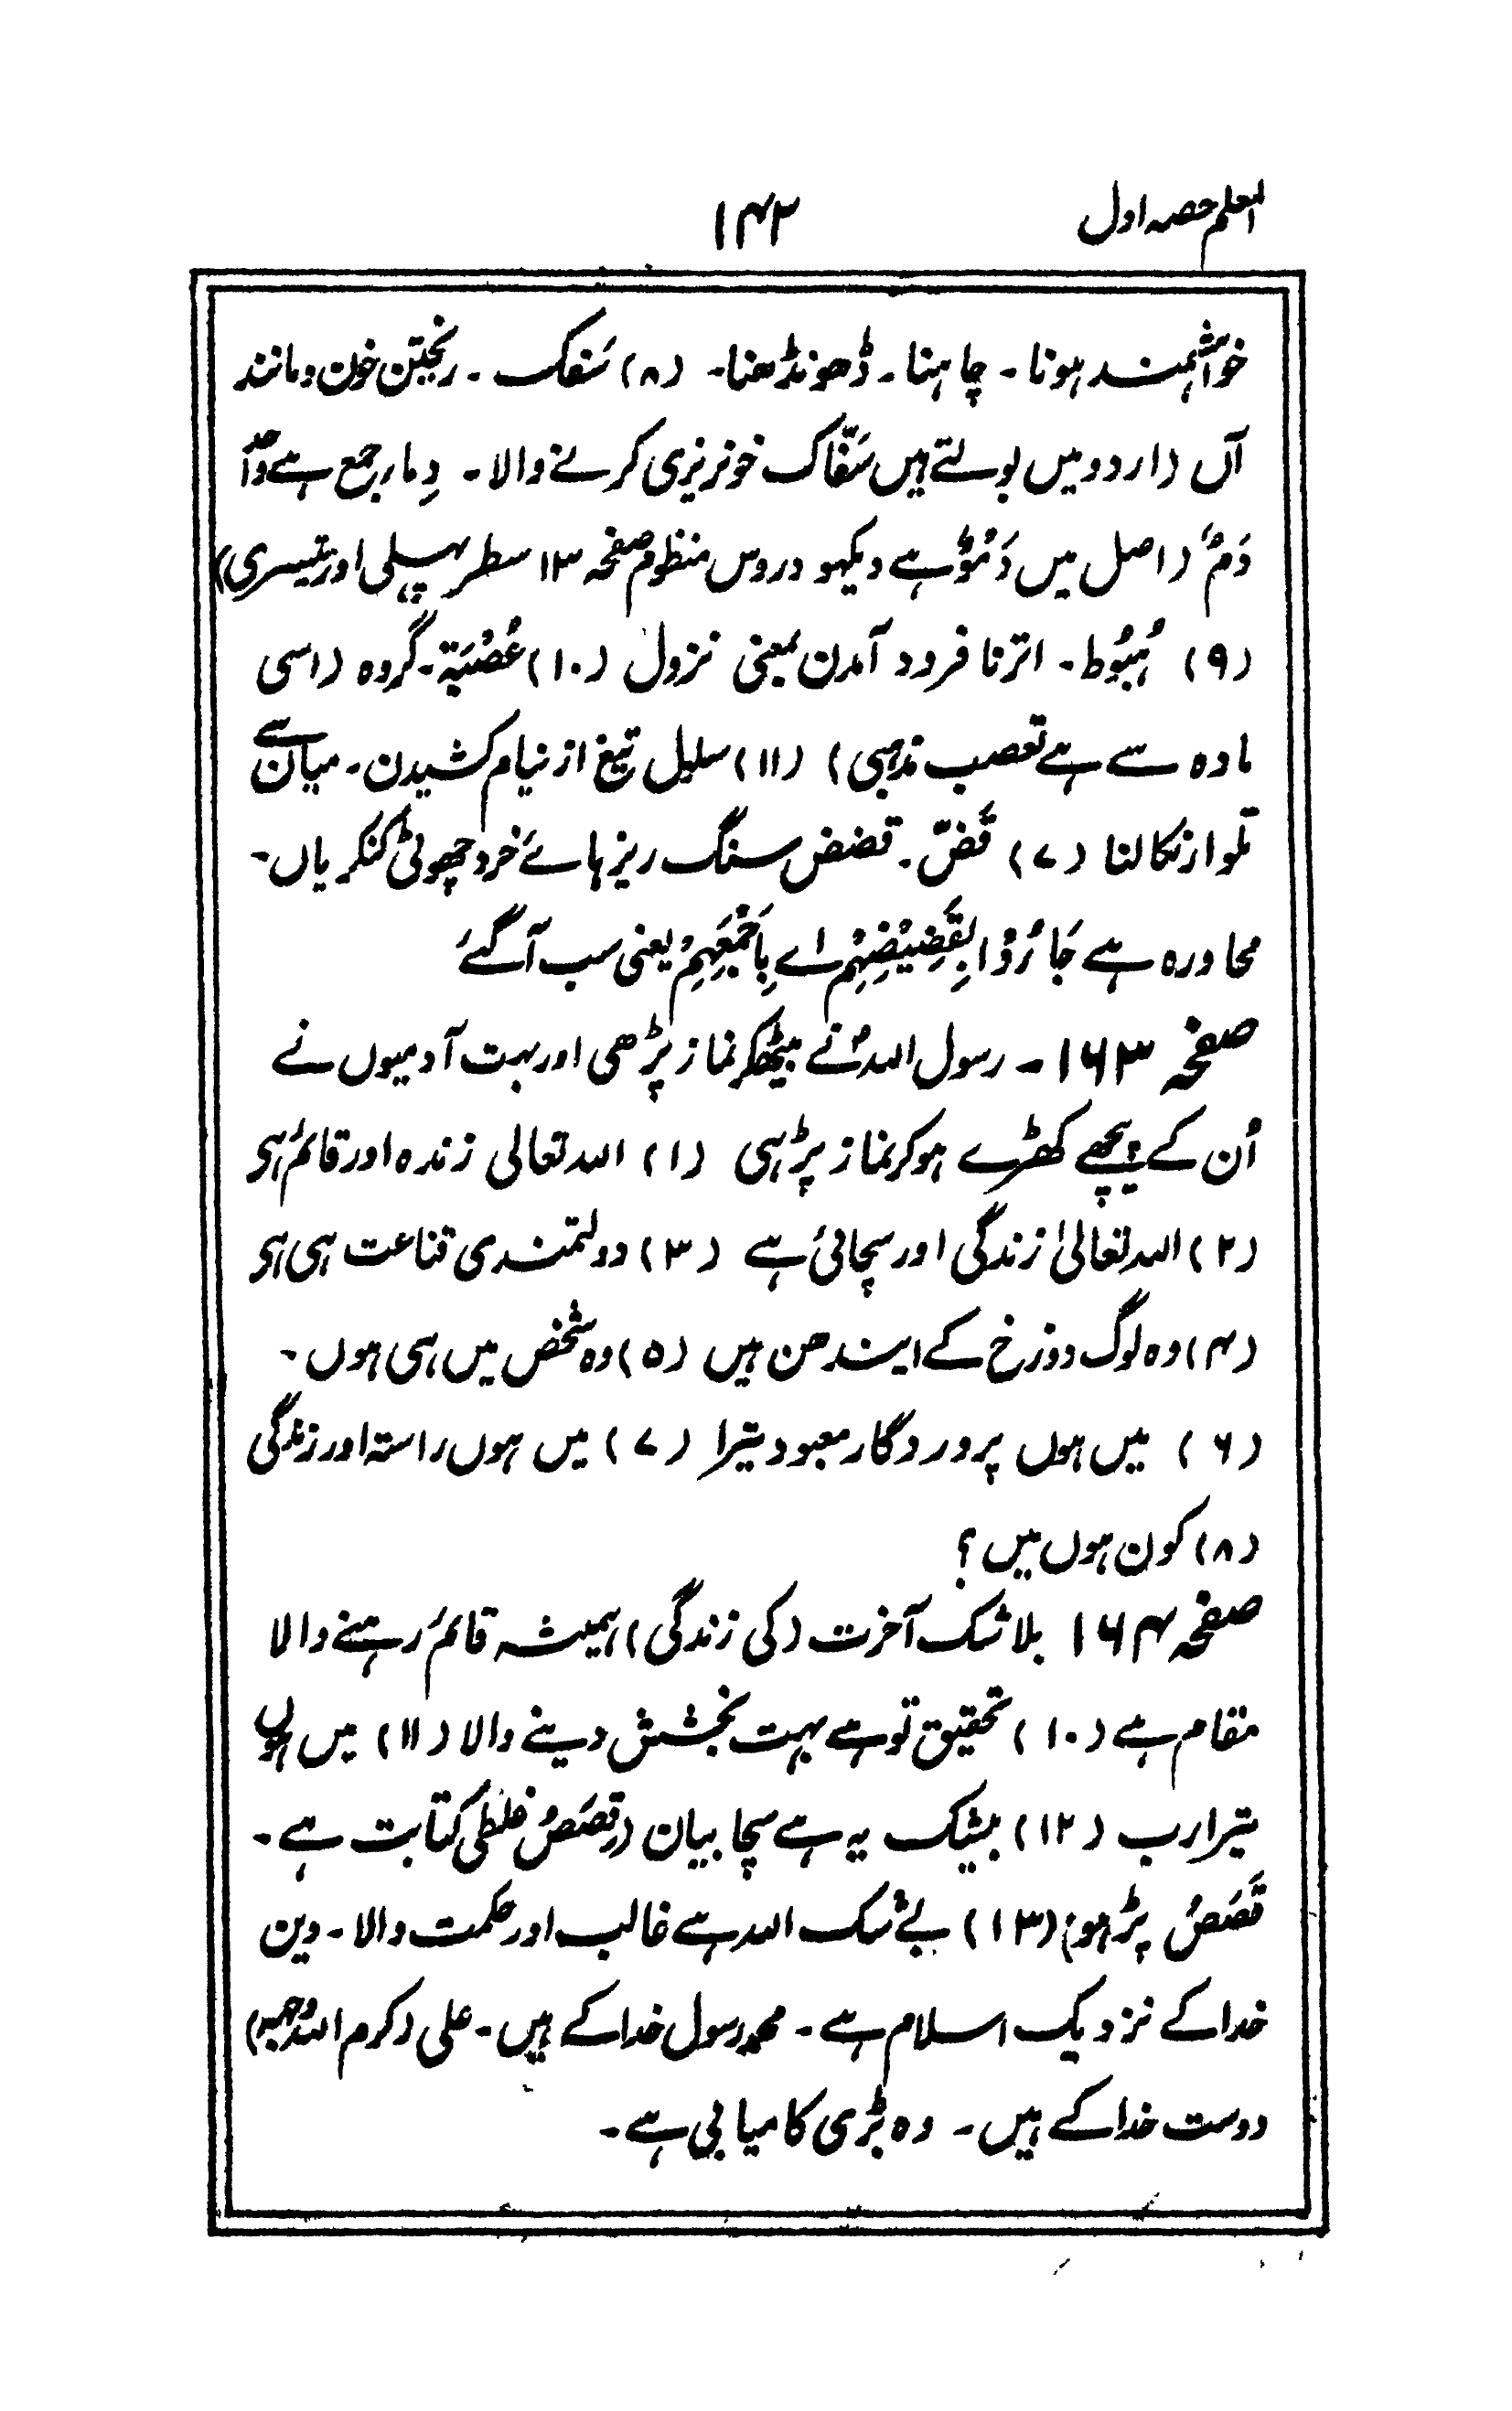 المعلم حصہ اول ۱۴۲
خواہشمند ہونا ۔ چاہنا ۔ ڈھونڈھنا ۔ (۸) سَفک ۔ ریختن خون و مانند
آں (اردو میں بولتے ہیں سَفّاک خونریزی کرنے والا ۔ دِماء جمع ہے واحد
دَمٌ (اصل میں دَمَوٌ ہے دیکھو دروس منظوم صفحہ ۱۳ سطر پہلی اور تیسری)
(۹) ہُبُوط ۔ اترنا فرود آمدن بمعنی نزول (۱۰) عُصْبَۃ ۔ گروہ (اسی
مادہ سے ہے تعصب مذہبی) (۱۱) سلیل تیغ از نیام کشیدن ۔ میان سے
تلوار نکالنا (۷) قَضّ ۔ قضض سنگ ریزہائے خرد چھوٹی کنکریاں ۔
محاورہ ہے جَاءُوْا بِقَضِیْضِہِمْ اے بِاَجْمَعِہِمْ یعنی سب آگئے
صفحہ ۱۶۳ ۔ رسول اللہؐ نے بیٹھکر نماز پڑھی اور بہت آدمیوں نے
اُن کے پیچھے کھڑے ہو کر نماز پڑہی (۱) اللہ تعالی زندہ اور قائم ہی
(۲) اللہ تعالیٰ زندگی اور سچائی ہے (۳) دولتمندی قناعت ہی ہی
(۴) وہ لوگ دوزخ کے ایندھن ہیں (۵) وہ شخص میں ہی ہوں ۔
(۶) میں ہوں پروردگار معبود تیرا (۷) میں ہوں راستہ اور زندگی
(۸) کون ہوں میں ؟
صفحہ ۱۶۴ بلاشک آخرت (کی زندگی) ہمیشہ قائم رہنے والا
مقام ہے (۱۰) تحقیق تو ہے بہت بخشش دینے والا (۱۱) میں ہوں
تیرا رب (۱۲) بیشک یہ ہے سچا بیان (قِصَصُ غلطی کتابت ہے ۔
قَصَصُ پڑہو) (۱۳) بے شک اللہ ہے غالب اور حکمت والا ۔ دین
خدا کے نزدیک اسلام ہے ۔ محمد رسول خدا کے ہیں ۔ علی (کرم اللہ وجہہ)
دوست خدا کے ہیں ۔ وہ بڑی کامیابی ہے ۔